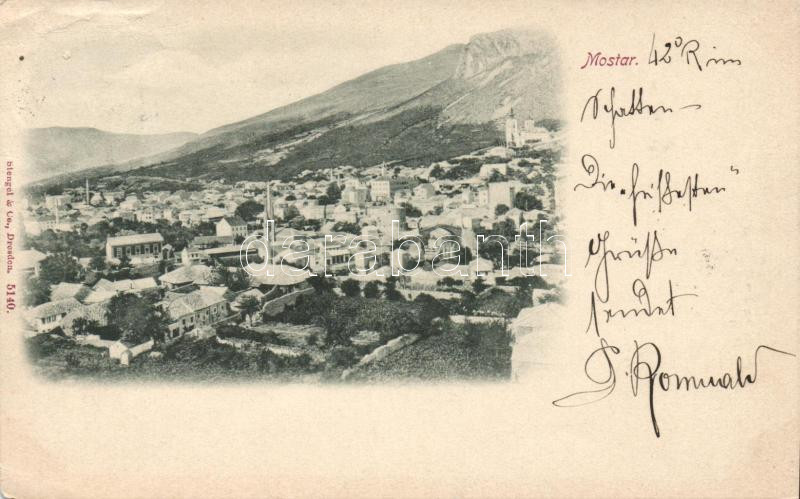 Mostar. 42° R im
Schatten
Die „frischesten"
Grüße
sendet
P. Romuald
Stengel & Co., Dresden. 5140.
darabanth